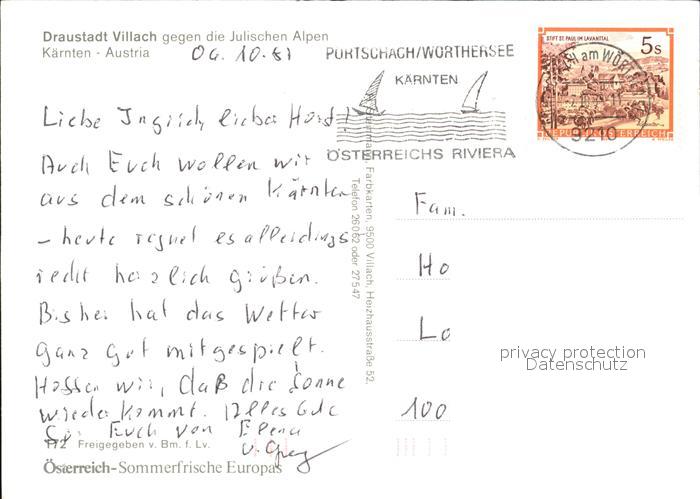 Draustadt Villach gegen die Julischen Alpen
Kärnten - Austria
06.10.87
PÖRTSCHACH/WÖRTHERSEE
KÄRNTEN
ÖSTERREICHS RIVIERA
STIFT ST. PAUL IM LAVANTTAL
5s
am WÖRT
9210
REPUBLIK ÖSTERREICH
Liebe Ingrid, lieber Horst!
Auch Euch wollen wir
aus dem schönen Kärnten
– heute regnet es allerdings
recht herzlich grüßen.
Bisher hat das Wetter
ganz gut mitgespielt.
Hoffen wir, daß die Sonne
wieder kommt. Alles Gute
für Euch von Elena
u.
Farbkarten, 9500 Villach, Heizhausstraße 52,
Telefon 26062 oder 27547
Fam.
Ho
Lo
100
privacy protection
Datenschutz
172 Freigegeben v. Bm. f. Lv.
Österreich-Sommerfrische Europas